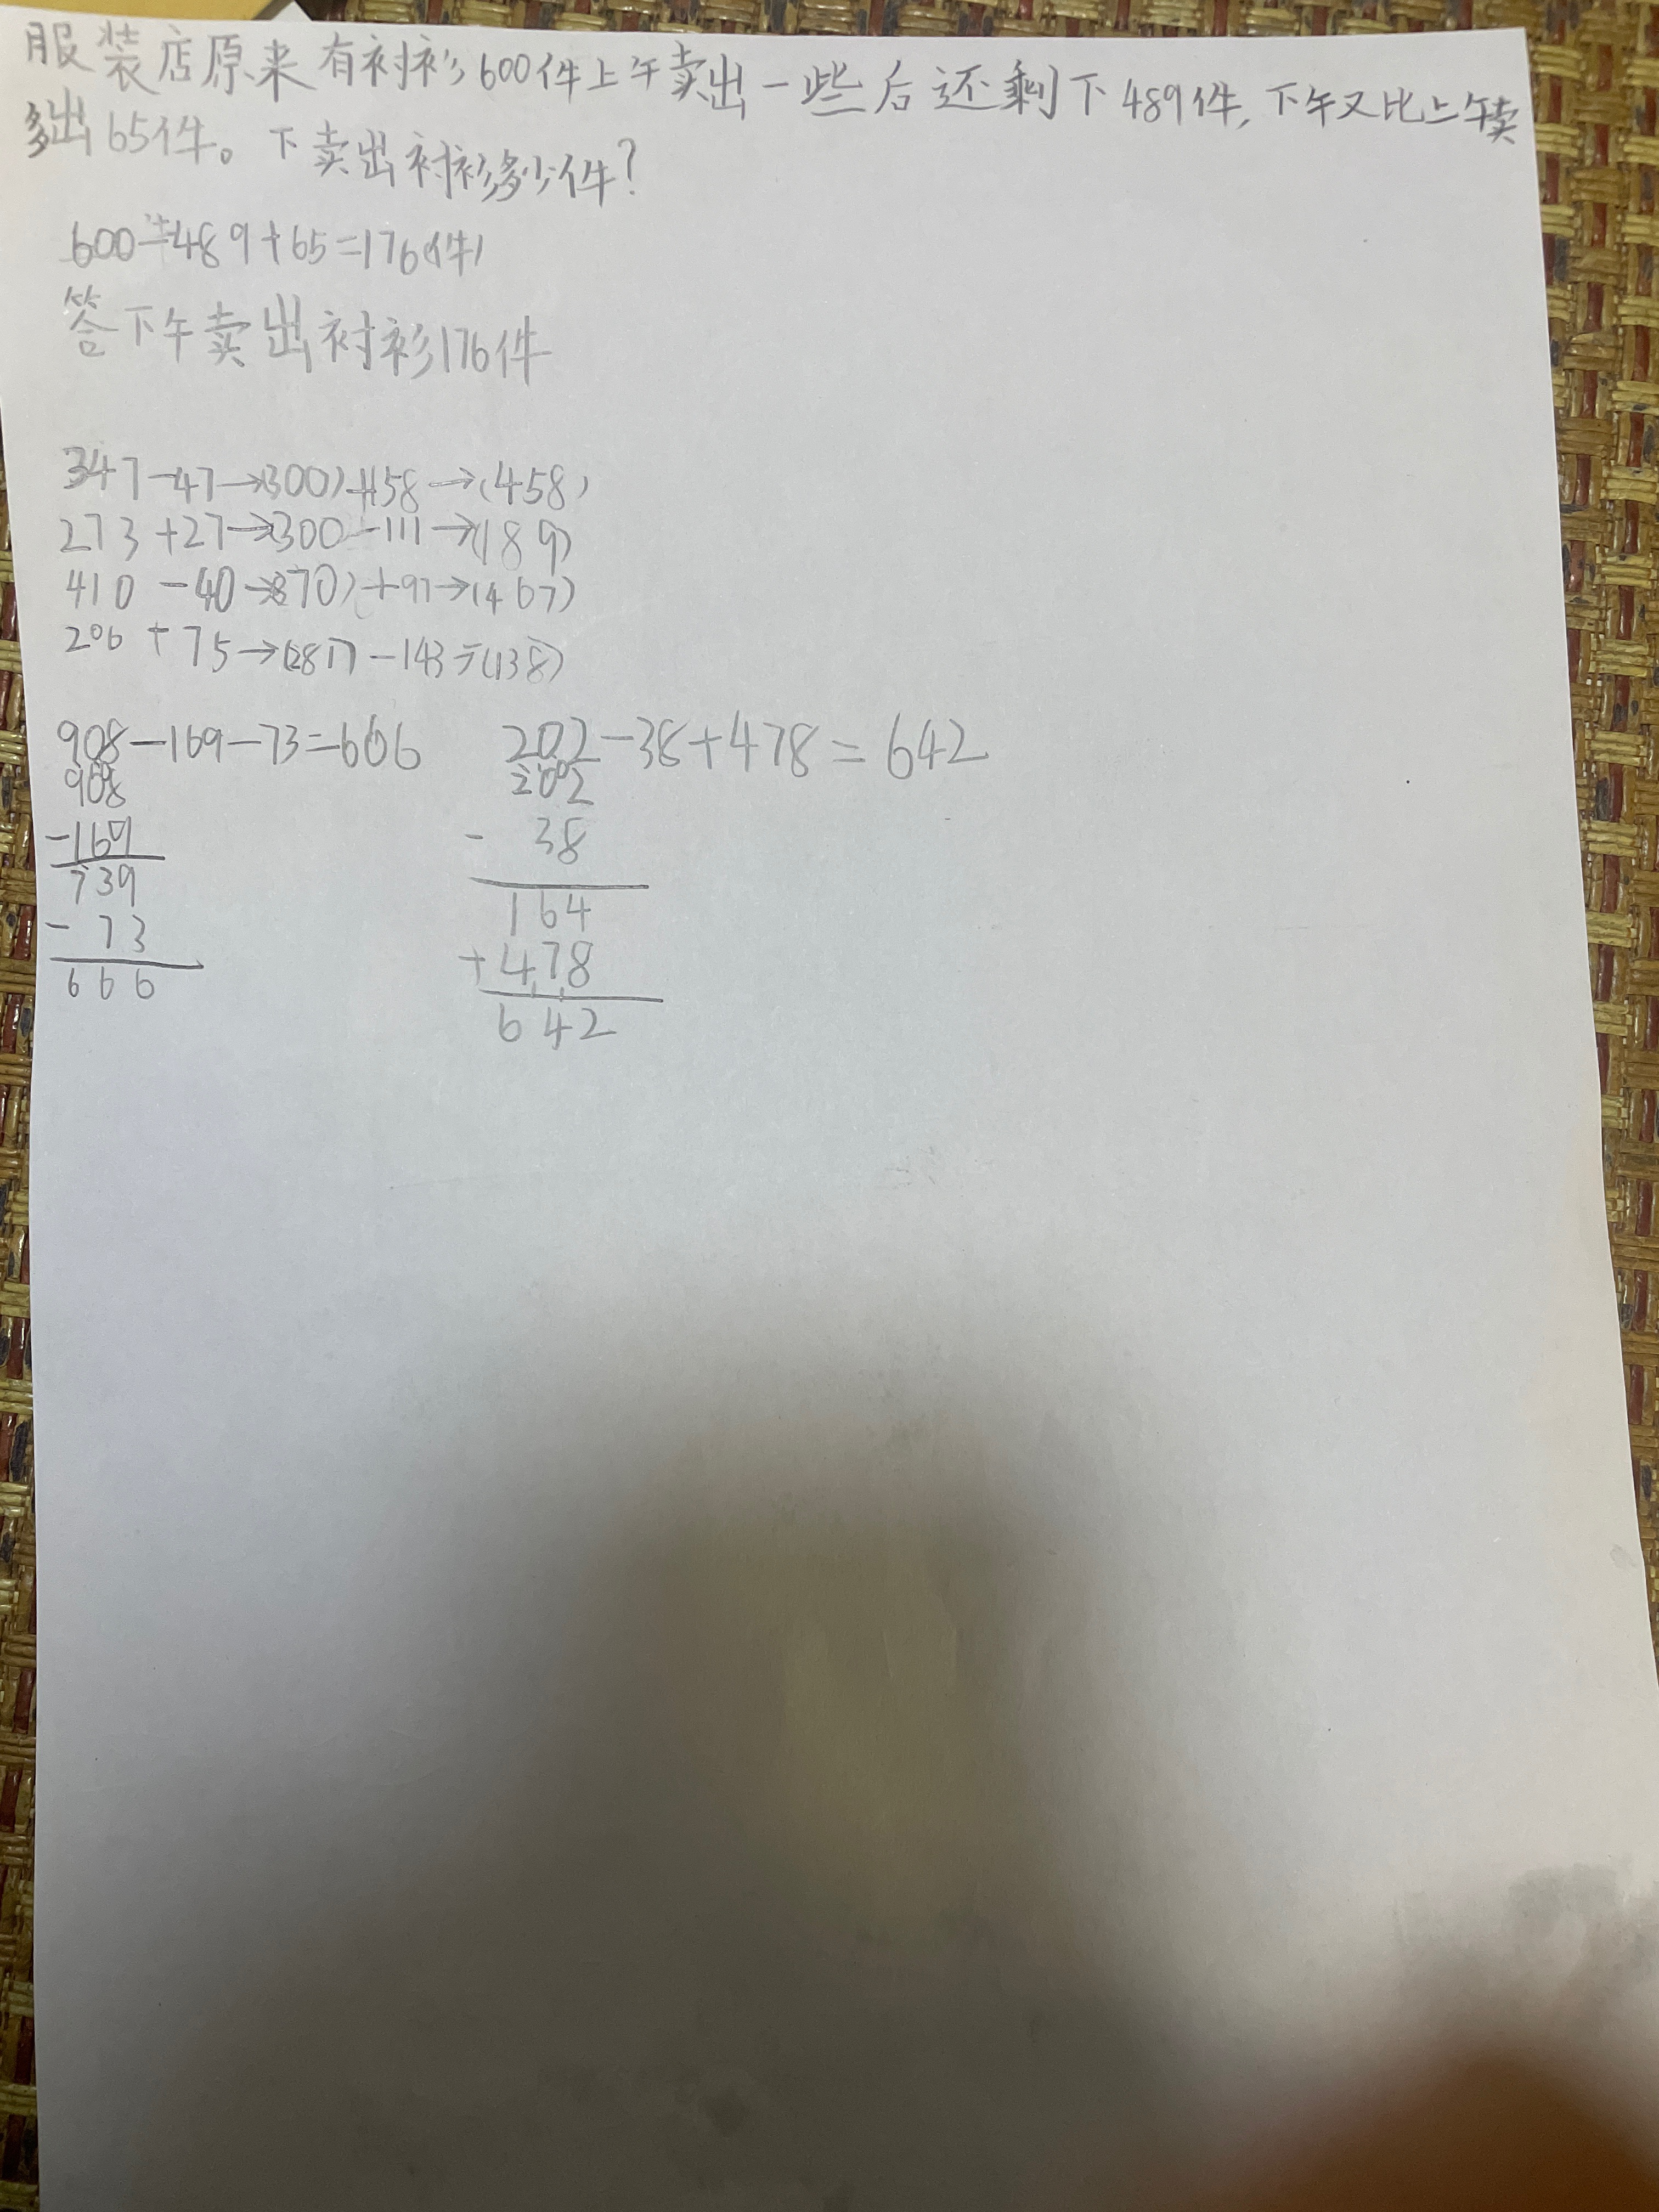 服装店原来有衬衫600件上午卖出一些后还剩下489件,下午又比上午卖
多出65件。下卖出衬衫多少件?
600-489+65=176(件)
答下午卖出衬衫176件
347-47→(300)+158→(458)
273+27→(300-111→(189)
410-40→(370)+97→(467)
206+75→(281)-143→(138)
908-169-73=666 202-38+478=642
908
-169
739
-73
666
202
-38
164
+478
642